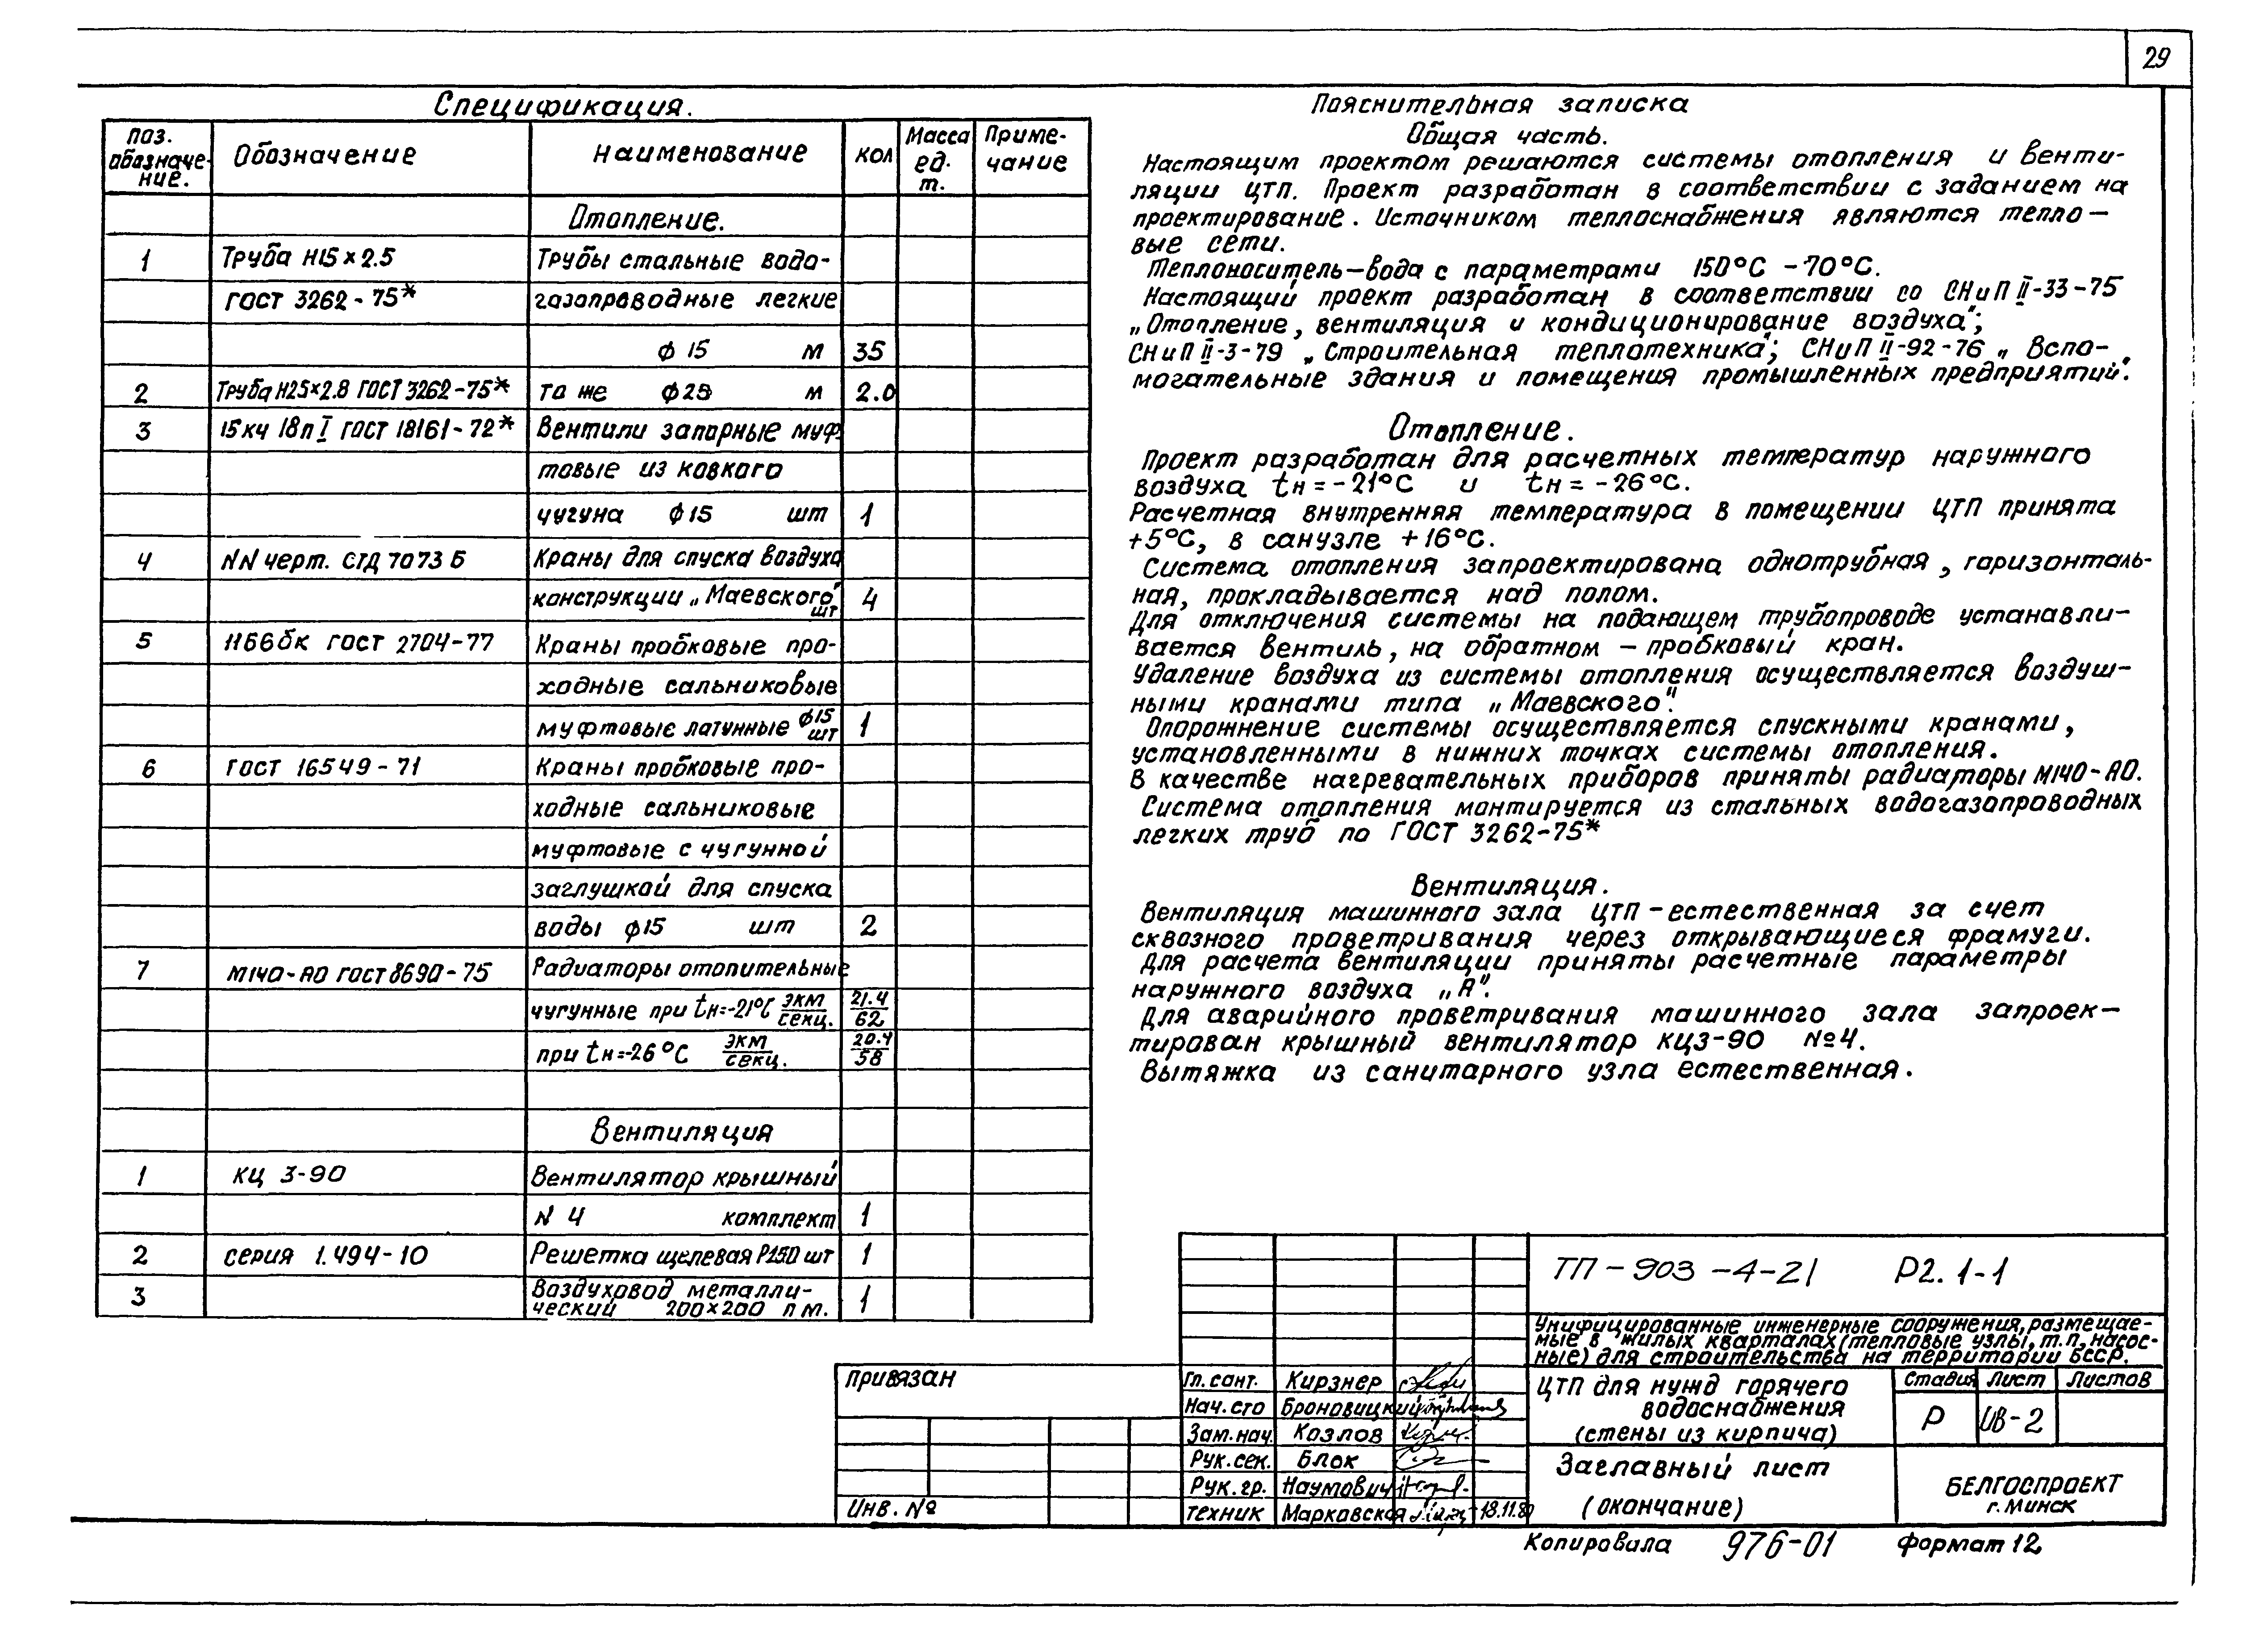 29
Спецификация.
поз. обозначе- ние. Обозначение Наименование кол Масса ед. т. Приме- чание
Отопление.
1 Труба Н15×2.5 Трубы стальные водо-
ГОСТ 3262-75* газопроводные легкие
ф 15 м 35
2 Труба Н25×2.8 ГОСТ 3262-75* то же ф25 м 2.0
3 15кч 18п I ГОСТ 18161-72* Вентили запорные муф-
товые из ковкого
чугуна ф15 шт 1
4 NN черт. СТД 7073 Б Краны для спуска воздуха
конструкции „Маевского" шт 4
5 11Б6бк ГОСТ 2704-77 Краны пробковые про-
ходные сальниковые
муфтовые латунные ф15 шт 1
6 ГОСТ 16549-71 Краны пробковые про-
ходные сальниковые
муфтовые с чугунной
заглушкой для спуска
воды ф15 шт 2
7 М140-АО ГОСТ 8690-75 Радиаторы отопительные
чугунные при tн=-21°С экм/секц. 21.4/62
при tн=-26°С экм/секц. 20.4/58
Вентиляция
1 КЦ 3-90 Вентилятор крышный
N 4 комплект 1
2 серия 1.494-10 Решетка щелевая Р150 шт 1
3 Воздуховод металли-
ческий 200×200 п м. 1
Пояснительная записка
Общая часть.
Настоящим проектом решаются системы отопления и венти-
ляции ЦТП. Проект разработан в соответствии с заданием на
проектирование. Источником теплоснабжения являются тепло-
вые сети.
Теплоноситель-вода с параметрами 150°С -70°С.
Настоящий проект разработан в соответствии со СНиП II-33-75
„Отопление, вентиляция и кондиционирование воздуха";
СНиП II-3-79 „Строительная теплотехника"; СНиП II-92-76 „Вспо-
могательные здания и помещения промышленных предприятий".
Отопление.
Проект разработан для расчетных температур наружного
воздуха tн=-21°С и tн=-26°С.
Расчетная внутренняя температура в помещении ЦТП принята
+5°С, в санузле +16°С.
Система отопления запроектирована однотрубная, горизонталь-
ная, прокладывается над полом.
Для отключения системы на подающем трубопроводе устанавли-
вается вентиль, на обратном - пробковый кран.
Удаление воздуха из системы отопления осуществляется воздуш-
ными кранами типа „Маевского".
Опорожнение системы осуществляется спускными кранами,
установленными в нижних точках системы отопления.
В качестве нагревательных приборов приняты радиаторы М140-АО.
Система отопления монтируется из стальных водогазопроводных
легких труб по ГОСТ 3262-75*
Вентиляция.
Вентиляция машинного зала ЦТП-естественная за счет
сквозного проветривания через открывающиеся фрамуги.
Для расчета вентиляции приняты расчетные параметры
наружного воздуха „А".
Для аварийного проветривания машинного зала запроек-
тирован крышный вентилятор КЦ3-90 №4.
Вытяжка из санитарного узла естественная.
ТП-903-4-21 Р2.1-1
Унифицированные инженерные сооружения, размещае-
мые в жилых кварталах (тепловые узлы, т.п, насос-
ные) для строительства на территории БССР.
Привязан
Инв. №
Гл. сант. Кирзнер
Нач. СТО Броновицкий
Зам. нач. Козлов
Рук. сек. Блок
Рук. гр. Наумович
техник Марковская 18.11.80
ЦТП для нужд горячего
водоснабжения
(стены из кирпича)
Стадия Лист Листов
Р ОВ-2
Заглавный лист
(окончание)
БЕЛГОСПРОЕКТ
г. Минск
Копировала 976-01 Формат 12